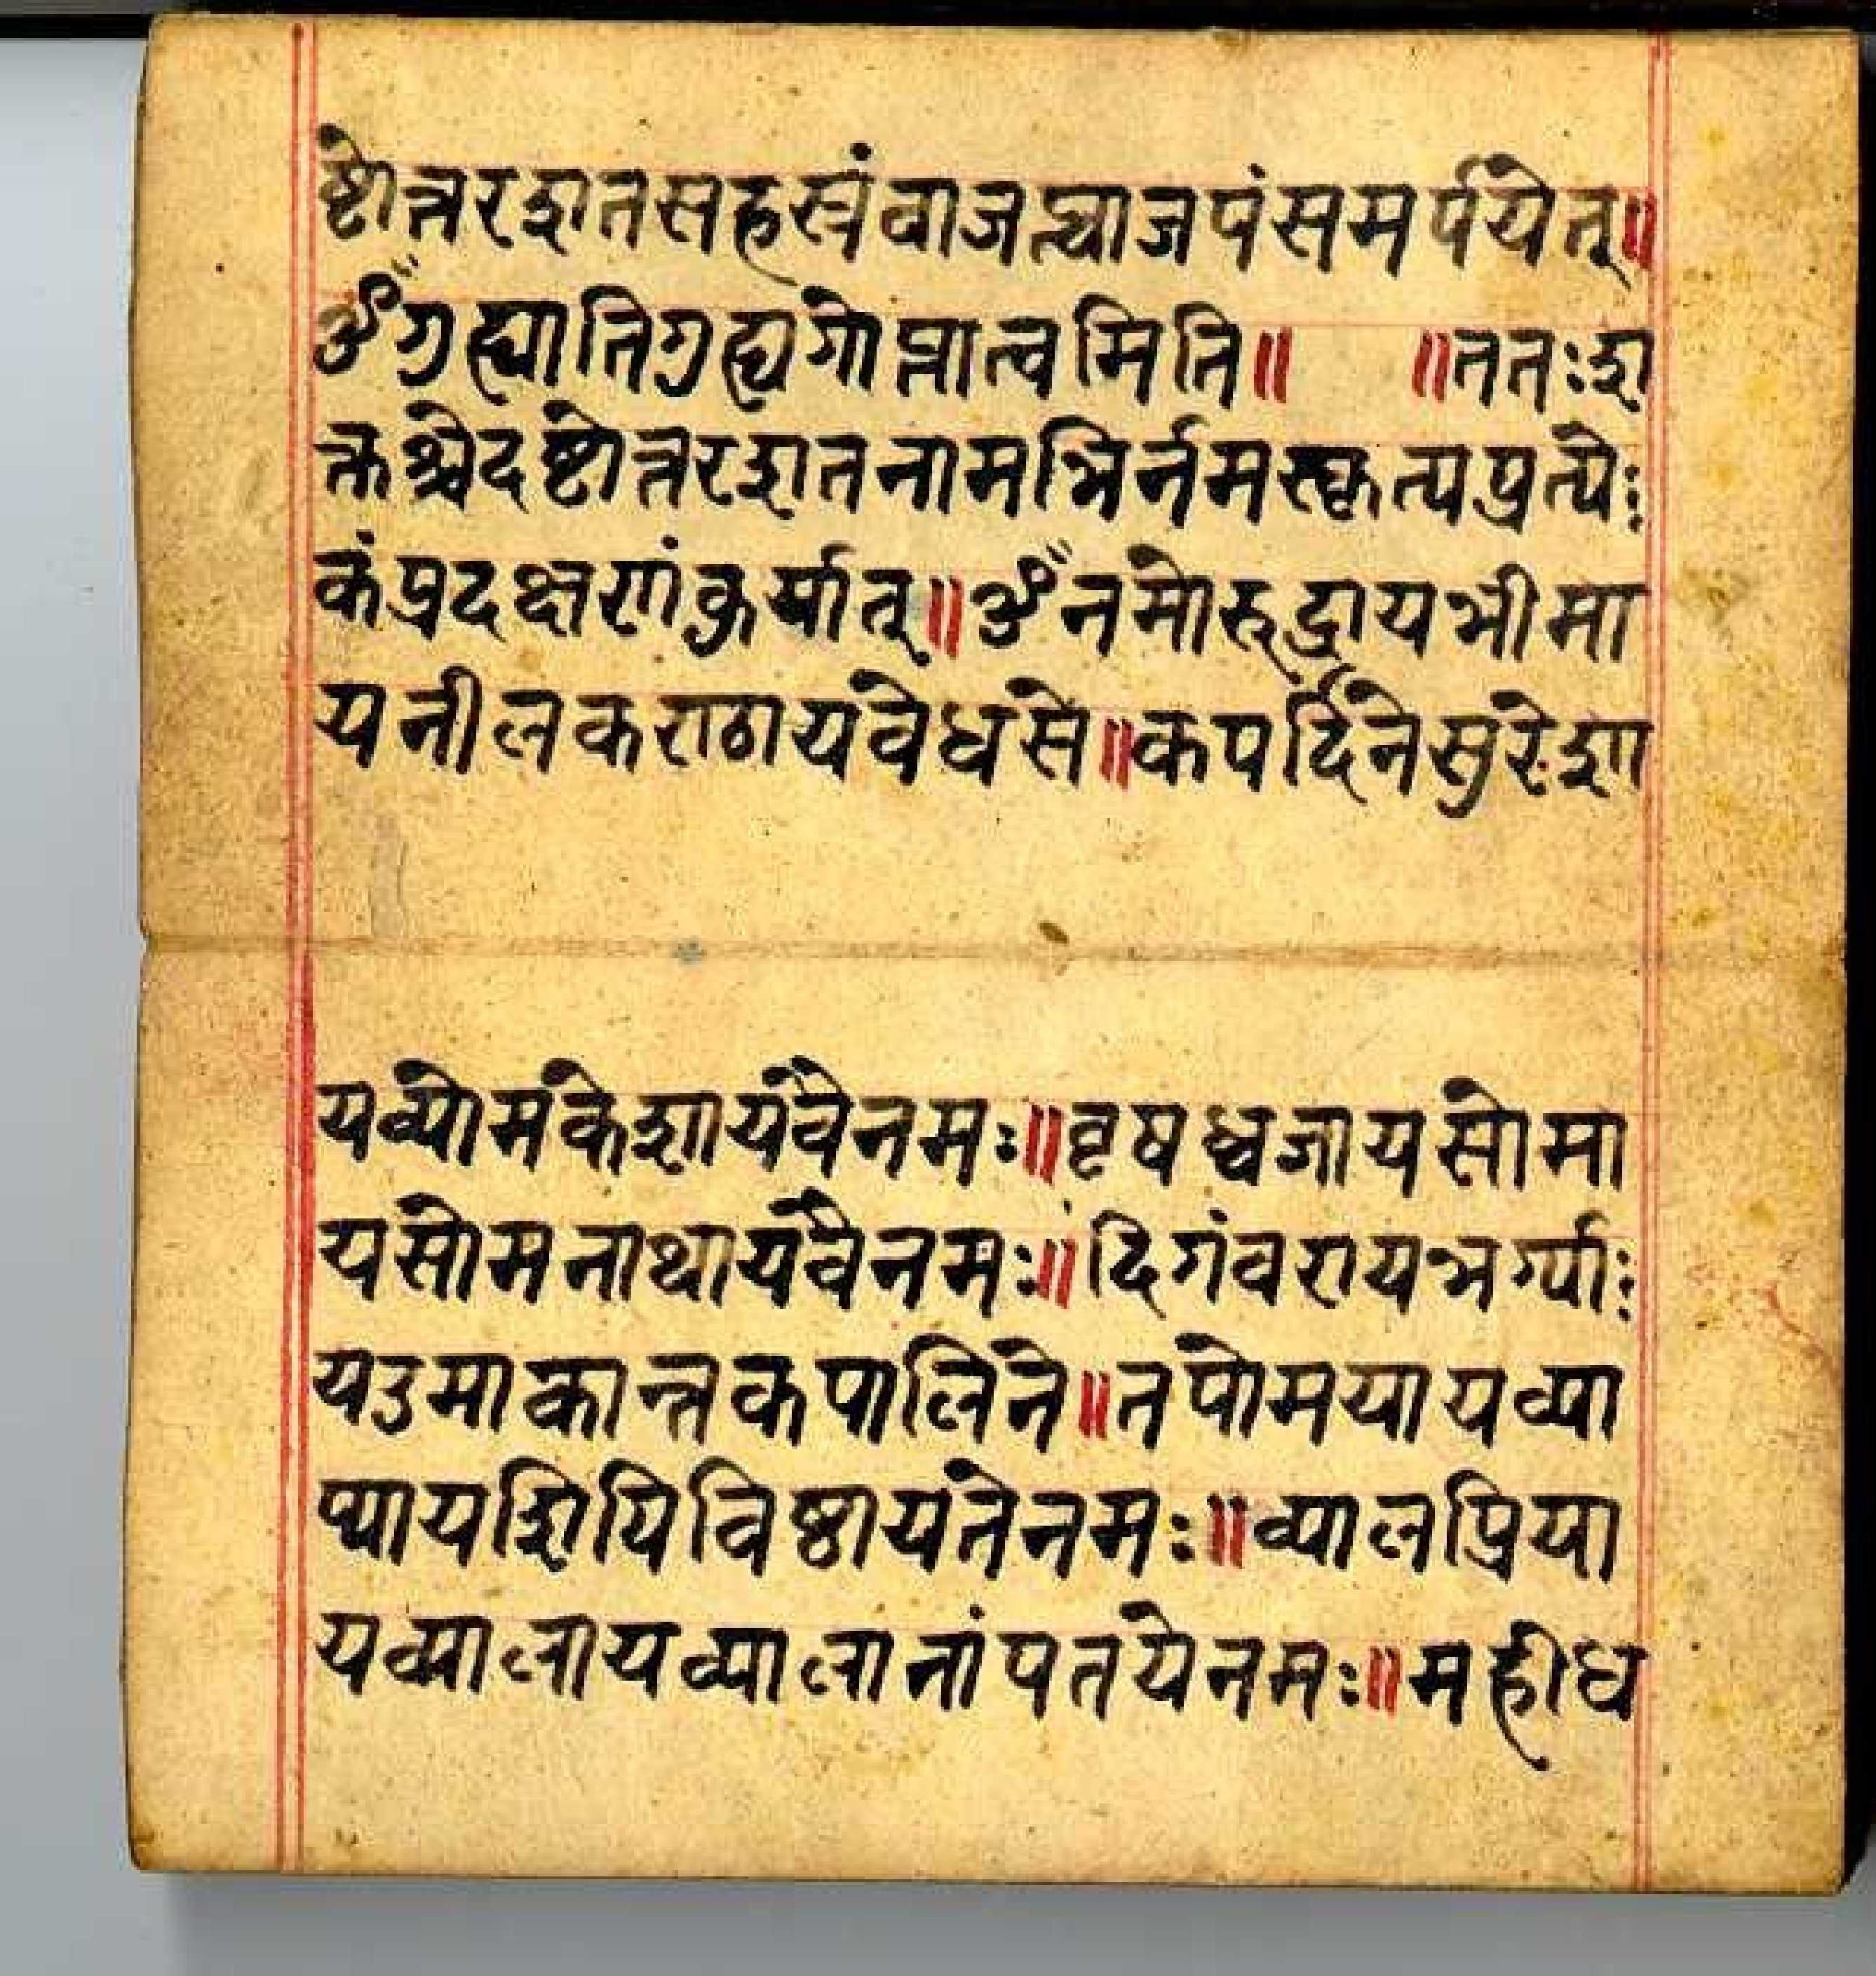 ष्टोत्तरशतसहस्रंवाजप्त्वाजपंसमर्पयेत्॥
ॐगुह्यातिगुह्यगोप्तात्वमिति॥ ॥ततःश
क्तश्चेदष्टोत्तरशतनामभिर्नमस्कृत्यप्रत्येः
कंप्रदक्षणंकुर्यात्॥ॐनमोरुद्रायभीमा
यनीलकण्ठायवेधसे॥कपर्दिनेसुरेशा
यव्योमकेशायवैनमः॥वृषध्वजायसोमा
यसोमनाथायवैनमः॥दिगंवरायभर्ग्याः
यउमाकान्तकपालिने॥तपोमयायव्या
प्यायशिपिविष्ठायतेनमः॥व्यालप्रिया
यव्यालायव्यालानांपतयेनमः॥महीध